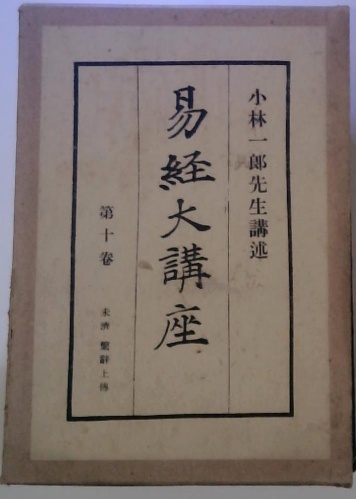 小林一郎先生講述
易経大講座
第十卷
未濟 繫辭上傳